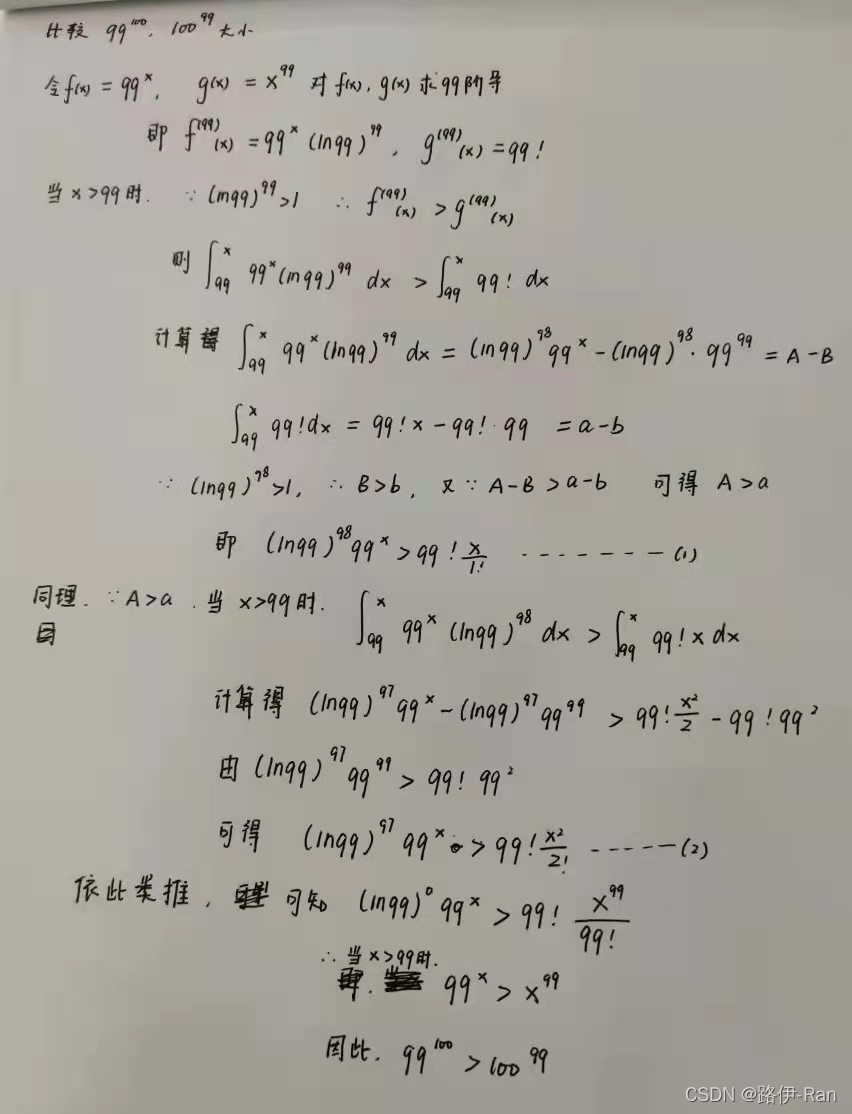 比较 99^100, 100^99 大小
令f(x) = 99^x, g(x) = x^99 对f(x), g(x) 求99阶导
即 f^(99)(x) = 99^x (ln99)^99, g^(99)(x) = 99!
当 x>99时. ∵ (ln99)^99>1 ∴ f^(99)(x) > g^(99)(x)
则 ∫_99^x 99^x(ln99)^99 dx > ∫_99^x 99! dx
计算得 ∫_99^x 99^x(ln99)^99 dx = (ln99)^98 99^x - (ln99)^98 · 99^99 = A-B
∫_99^x 99!dx = 99!x - 99!·99 = a-b
∵ (ln99)^98>1, ∴ B>b, 又∵ A-B>a-b 可得 A>a
即 (ln99)^98 99^x > 99! x/1! -------- (1)
同理. ∵A>a. 当 x>99时. ∫_99^x 99^x (ln99)^98 dx > ∫_99^x 99! x dx
计算得 (ln99)^97 99^x - (ln99)^97 99^99 > 99! x²/2 - 99! 99²
由 (ln99)^97 99^99 > 99! 99²
可得 (ln99)^97 99^x > 99! x²/2! ------ (2)
依此类推, 可知 (ln99)^0 99^x > 99! x^99/99!
∴ 当 x>99时.
99^x > x^99
因此. 99^100 > 100^99
CSDN @路伊-Ran